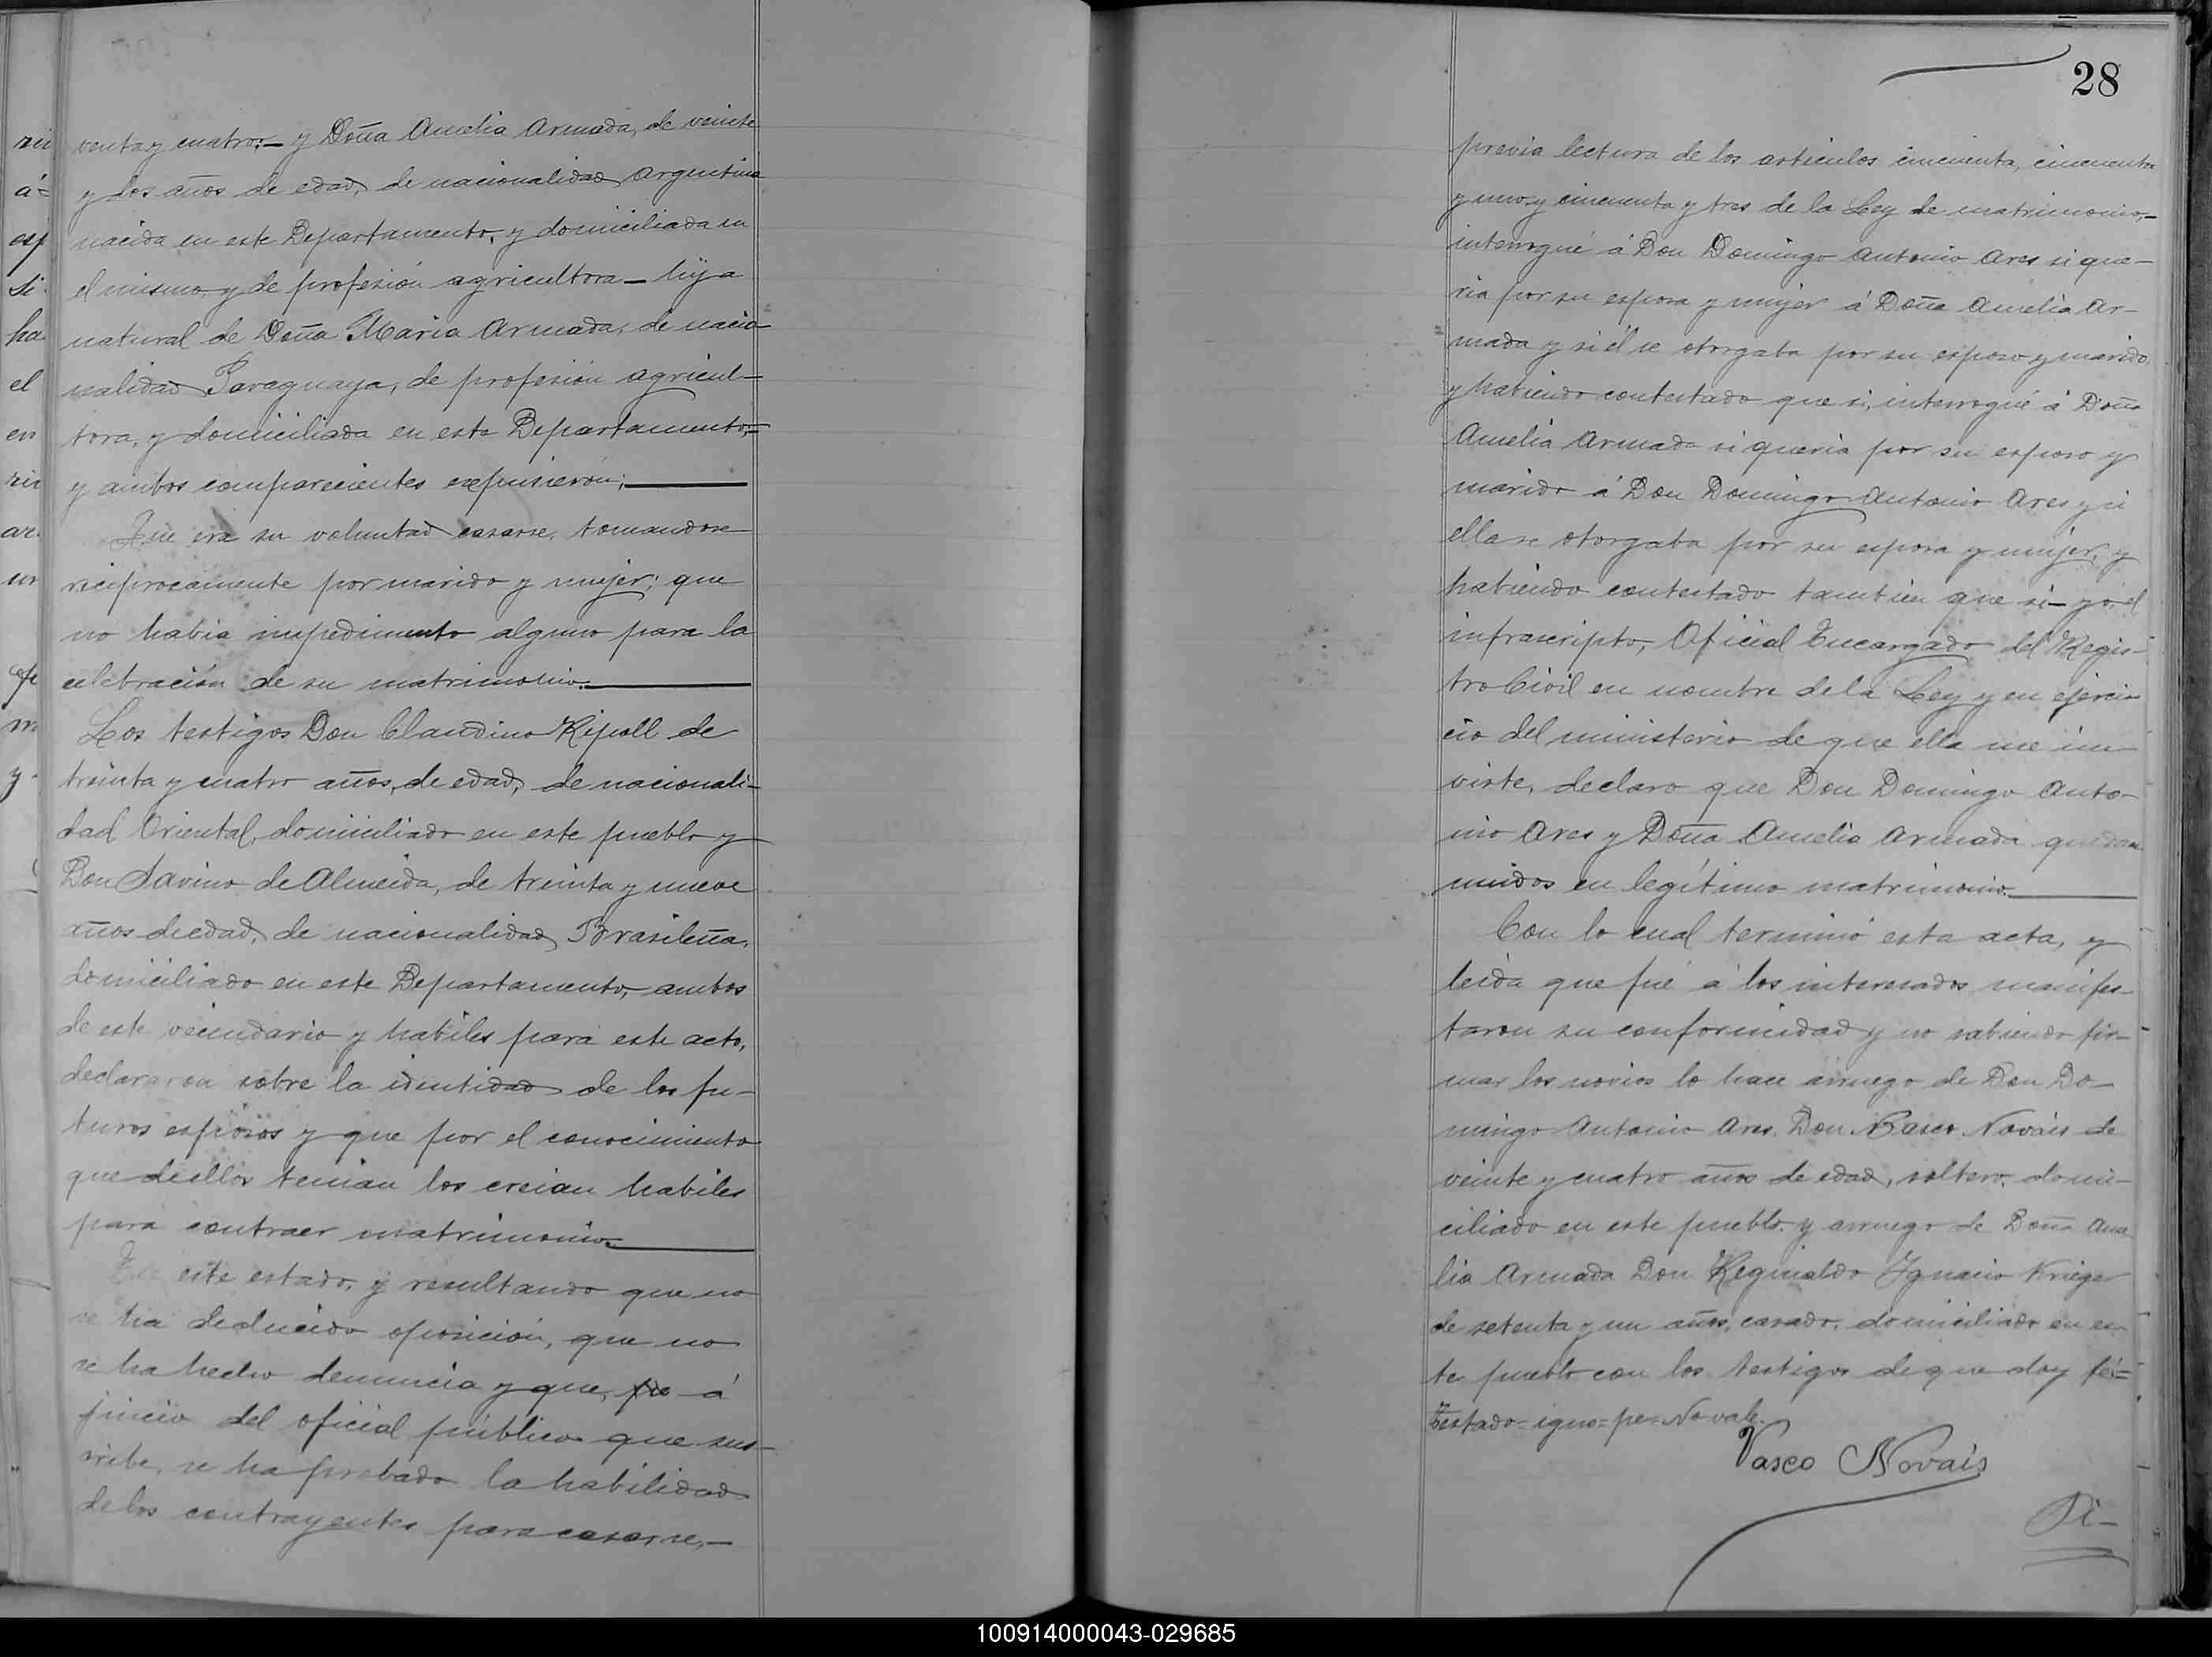 venta y cuatro:— y Doña Amelia Armada, de veinte
y dos años de edad, de nacionalidad Argentina
nacida en este Departamento, y domiciliada en
el mismo, y de profesión agricultora — hija
natural de Doña Maria Armada, de nacio-
nalidad Paraguaya, de profesión agricul-
tora, y domiciliada en este Departamento,=
y ambos comparecientes expusierón;
Que era su voluntad casarse, tomandose
reciprocamente por marido y mujer; que
no habia impedimento alguno para la
celebración de su matrimonio.
Los testigos Don Claudino Ripoll de
treinta y cuatro años, de edad, de nacionali-
dad Oriental, domiciliado en este pueblo y
Don Savino de Almeida, de treinta y nueve
años de edad, de nacionalidad Brasileña,
domiciliado en este Departamento, ambos
de este vecindario y habiles para este acto,
declararon sobre la identidad de los fu-
turos esposos y que por el conocimiento
que de ellos tenian los creian habiles
para contraer matrimonio.
En este estado, y resultando que no
se ha deducido oposición, que no
se ha hecho denuncia y que, á
juicio del oficial público que sus-
cribe, se ha probado la habilidad
de los contrayentes para casarse,—
28
previa lectura de los articulos cincuenta, cincuenta
y uno y cincuenta y tres de la Ley de matrimonio,—
interrogué á Don Domingo Antonio Ares si que-
ria por su esposa y mujer á Doña Amelia Ar-
mada y si él se otorgaba por su esposo y marido,
y habiendo contestado que si, interrogué á Doña
Amelia Armada si queria por su esposo y
marido á Don Domingo Antonio Ares y si
ella se otorgaba por su esposa y mujer, y
habiendo contestado tambien que si— yo, el
infrascripto, Oficial Encargado del Regis-
tro Civil en nombre de la Ley y en ejerci-
cio del ministerio de que ella me in-
viste, declaro que Don Domingo Anto-
nio Ares y Doña Amelia Armada quedan
unidos en legítimo matrimonio.
Con lo cual terminó esta acta, y
leida que fué á los interesados manifes-
taron su conformidad y no sabiendo fir-
mar los novios lo hace arruego de Don Do-
mingo Antonio Ares, Don Vasco Novais de
veinte y cuatro años de edad, soltero, domi-
ciliado en este pueblo y arruego de Doña Ame
lia Armada Don Reginaldo Ignacio Krieger
de setenta y un años, casado, domiciliado en es-
te pueblo con los testigos de que doy fé:=
Testado= igno= pe= No vale.
Vasco Novais
100914000043-029685